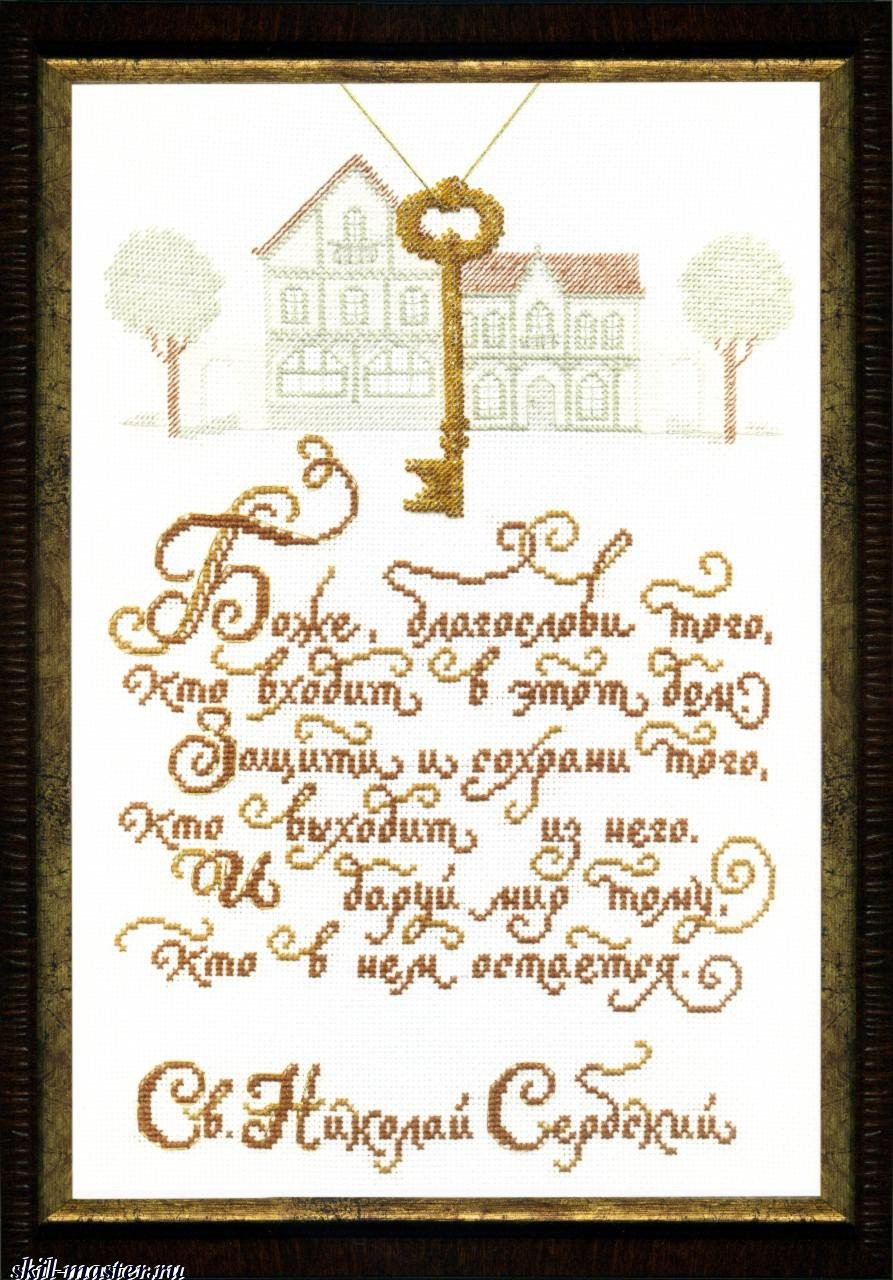 Боже, благослови того,
кто входит в этот дом;
Защити и сохрани того,
кто выходит из него.
И даруй мир тому,
Кто в нем остаётся.
Св. Николай Сербский
skil-master.ru